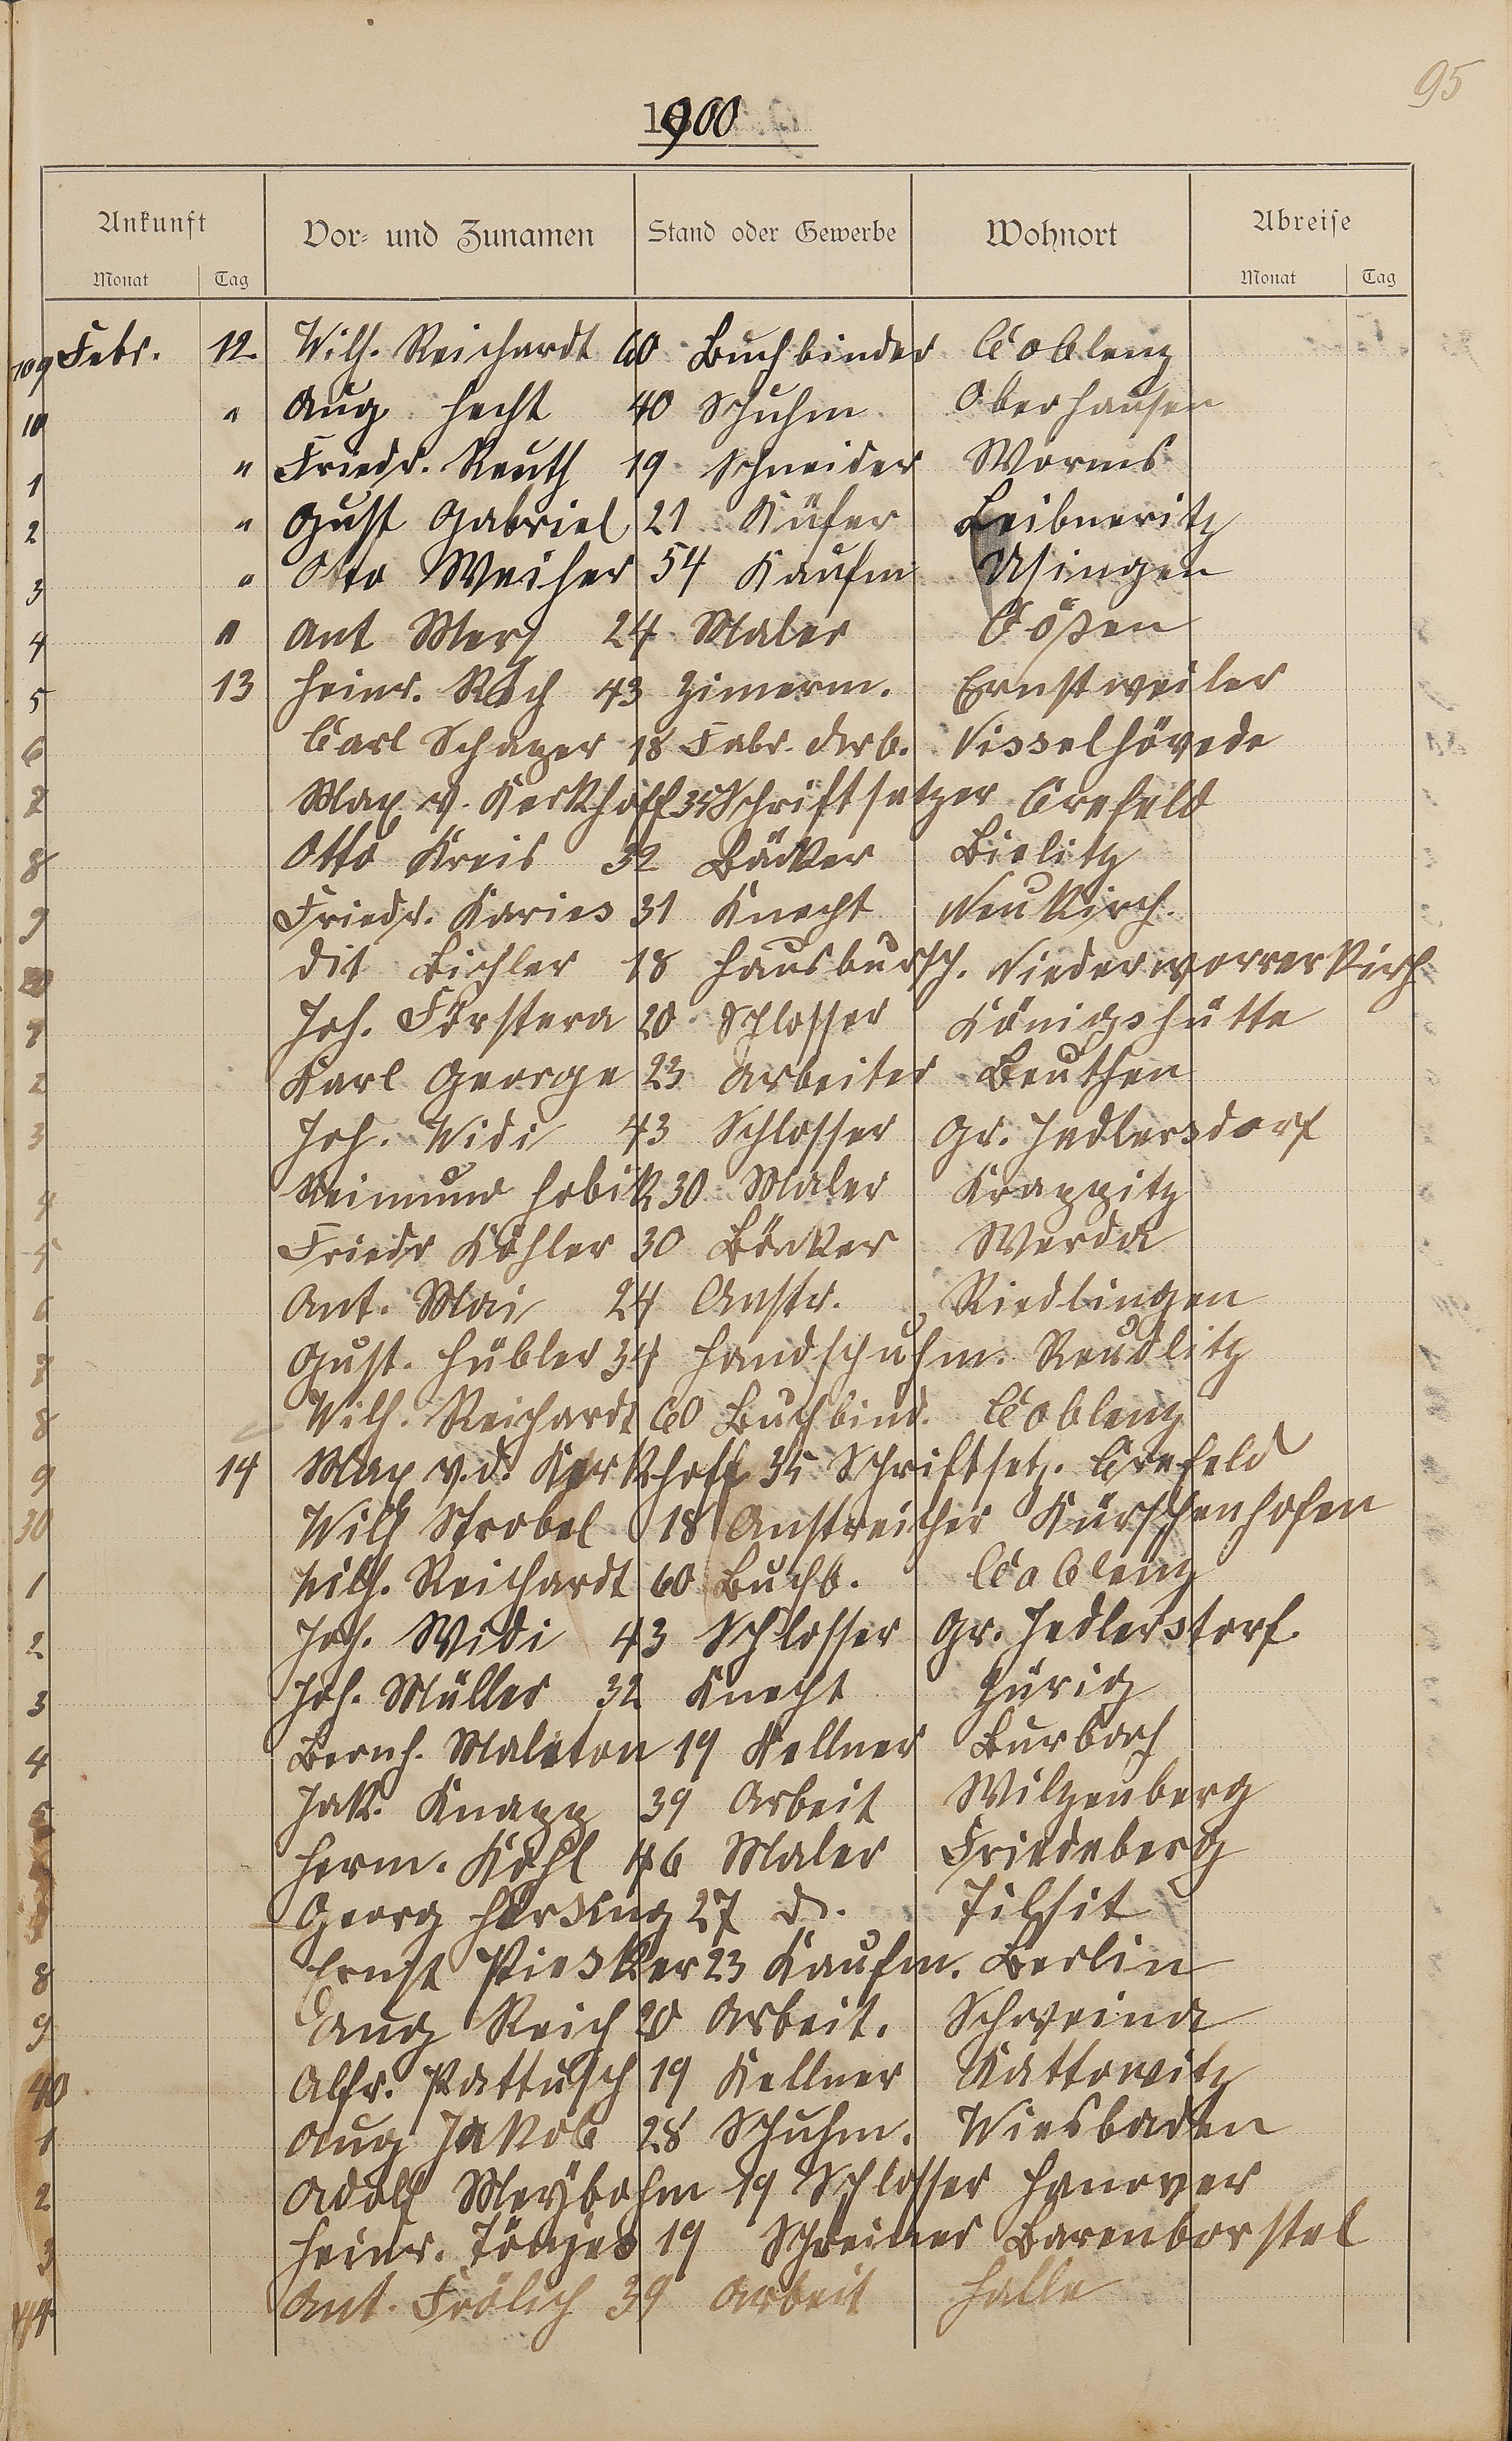 95
1900
Ankunft Vor- und Zunamen Stand oder Gewerbe Wohnort Abreise
Monat Tag Monat Tag
109 Febr. 12. Wilh. Reichardt 60 Buchbinder Coblenz
10 " Aug Hecht 40 Schuhm. Oberhausen
1 " Friedr. Reuth 19 Schneider Worms
2 " Gust Gabriel 21 Küfer Leibneritz
3 " Otto Weiher 54 Kaufm Usingen
4 " Ant Merz 24 Maler
5 13 Heinr. Rech 43 Zimerm. Ernstweiler
6 Carl Schazer 18 Fabr. Arb. Visselhövede
7 Max v. Kerkhoff 35 Schriftsetzer Crefeld
8 Otto Kreis 32 Bäcker Bielitz
9 Friedr. Karies 31 Knecht Neukirch.
20 Dit Bichler 18 Hausbursch. Niederworrerkirch
1 Joh. Förstera 20 Schlosser Königshütte
2 Karl George 23 Arbeiter Beuthen
3 Joh. Widi 43 Schlosser Gr. Jedlersdorf
4 Reimund Hobik 30 Maler Krappitz
5 Friedr Köhler 30 Bäcker Werda
6 Ant. Mai 24 Anstr. Riedlingen
7 Gust. Hübler 34 Handschuhm. Reudlitz
8 Wilh. Reichardt 60 Buchbind. Coblenz
9 14 Max v. d. Kerkhoff 35 Schriftsetz. Crefeld
30 Wilh Strobel 18 Anstreicher Kürschenhofen
1 Wilh. Reichardt 60 Buchb. Coblenz
2 Joh. Widi 43 Schlosser Gr. Jedlerstorf.
3 Joh. Müller 32 Knecht Zürig
4 Bernh. Maleton 19 Kellner Burbach
5 Jak. Knapp 39 Arbeit Wilzenberg
Herm. Kohl 46 Maler Friedeberg
Georg Hersing 27 d. Tilsit
8 Ernst Piesker 23 Kaufm. Berlin
9 Aug Reich 20 Arbeit. Schweina
40 Alfr. Pattusch 19 Kellner Kattowitz
1 Aug Jakob 28 Schuhm. Wiesbaden
2 Adolf Meybohm 19 Schlosser Hanover
3 Heinr. Tönjes 19 Schreiner Barenborstel
144 Ant. Frölich 39 Arbeit Halle